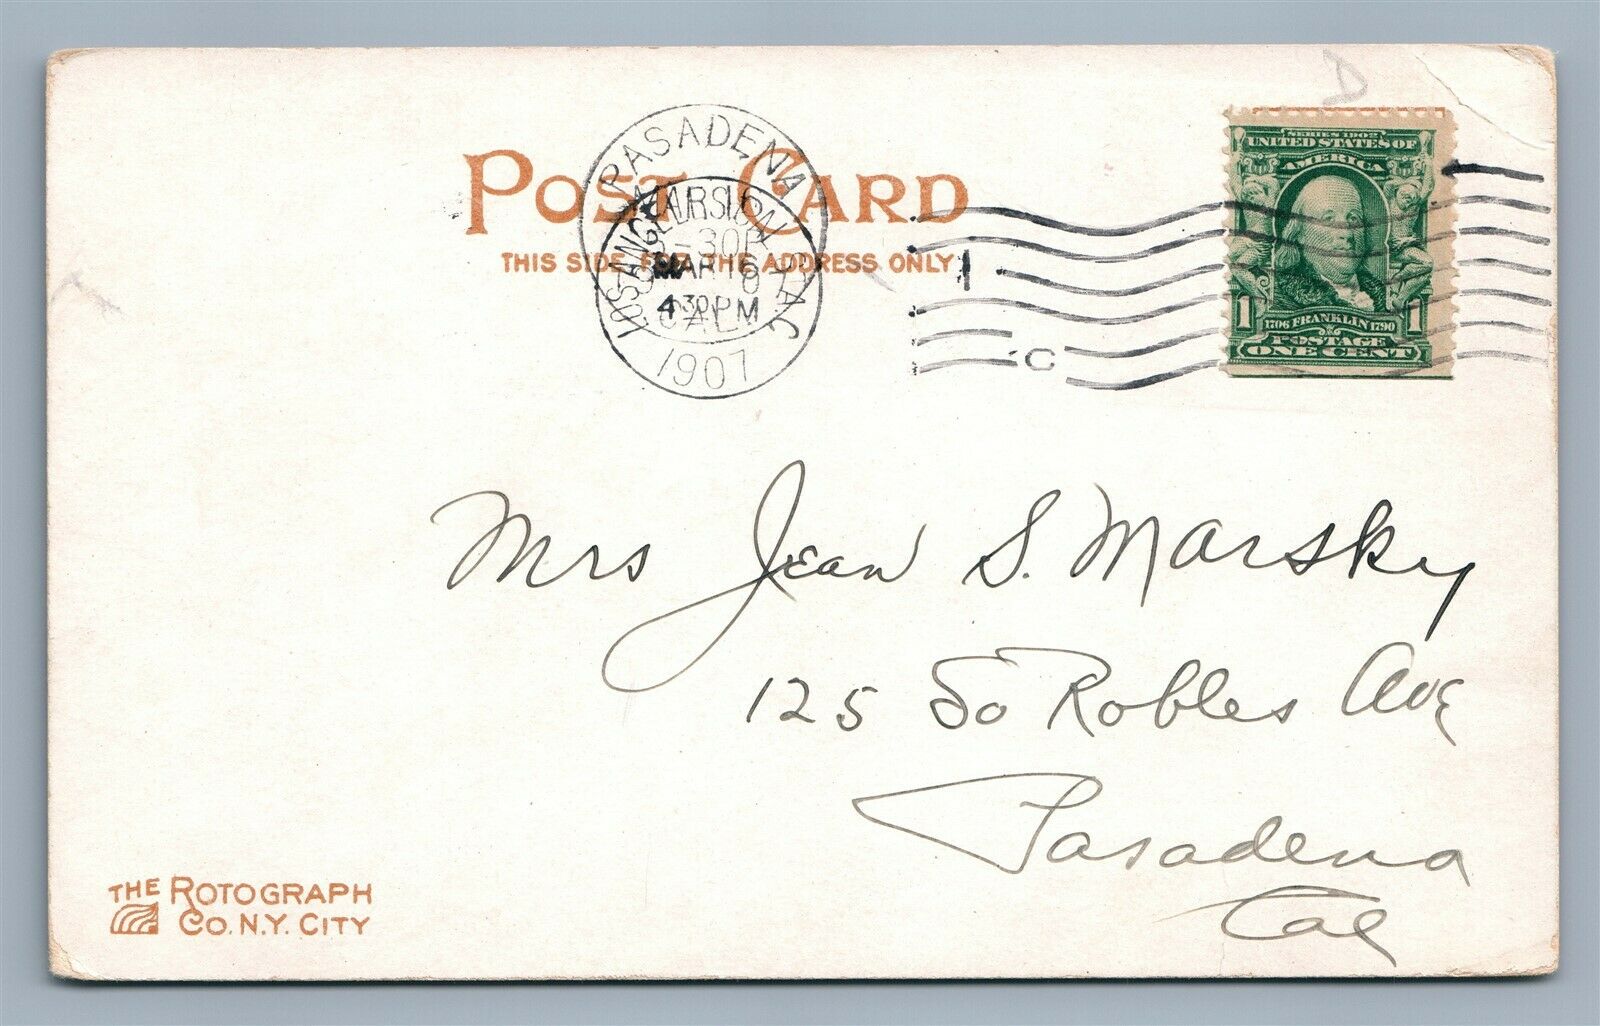 POST CARD
THIS SIDE FOR THE ADDRESS ONLY
PASADENA
MAR 16
4 30 PM
CAL
1907
LOS ANGELES
1
C
SERIES 1902
UNITED STATES OF
AMERICA
1 1706 FRANKLIN 1790 1
POSTAGE
ONE CENT
Mrs Jean S. Marsky
125 So Robles Ave
Pasadena
Cal
THE ROTOGRAPH
CO. N.Y. CITY